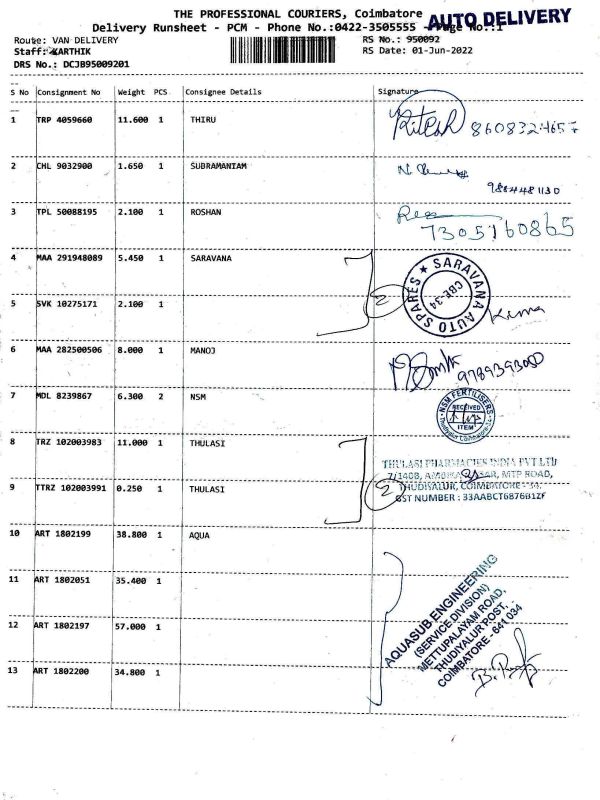 THE PROFESSIONAL COURIERS, Coimbatore
AUTO DELIVERY
Delivery Runsheet - PCM - Phone No.:0422-3505555 - Page No.:1
Route: VAN DELIVERY
RS No.: 950092
Staff: KARTHIK
RS Date: 01-Jun-2022
DRS No.: DCJB95009201
S No Consignment No Weight PCS Consignee Details Signature
1 TRP 4059660 11.600 1 THIRU Ritesh 8608324657
2 CHL 9032900 1.650 1 SUBRAMANIAM
9884481130
3 TPL 50088195 2.100 1 ROSHAN
7305160865
4 MAA 291948089 5.450 1 SARAVANA
2
SARAVANA AUTO SPARES
CBE-34
5 SVK 10275171 2.100 1
6 MAA 282500506 8.000 1 MANOJ
9789393000
7 MDL 8239867 6.300 2 NSM
NSM FERTILISERS
RECEIVED
ITEM
8 TRZ 102003983 11.000 1 THULASI
THULASI PHARMACIES INDIA PVT LTD
7/140B, MTP ROAD,
THUDIYALUR, COIMBATORE - 34.
2
GST NUMBER : 33AABCT6876B1ZF
9 TTRZ 102003991 0.250 1 THULASI
10 ART 1802199 38.800 1 AQUA
11 ART 1802051 35.400 1
AQUASUB ENGINEERING
(SERVICE DIVISION)
METTUPALAYAM ROAD,
THUDIYALUR POST,
COIMBATORE - 641 034
12 ART 1802197 57.000 1
13 ART 1802200 34.800 1